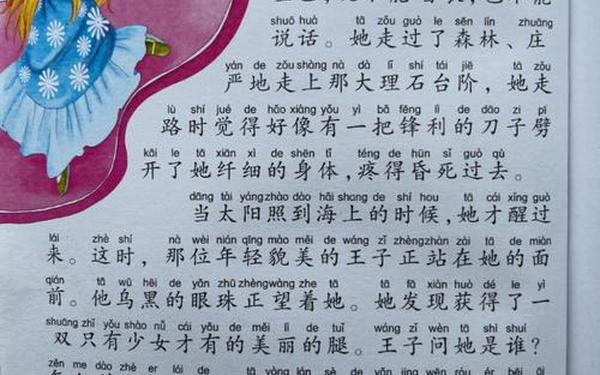 shuō huà tā zǒu guò le sēn lín zhuāng
说话。她走过了森林、庄
yán de zǒu shàng nà dà lǐ shí tái jiē tā
严地走上那大理石台阶，她走
lù shí jué de hǎo xiàng yǒu yì bǎ fēng lì de dāo zi pī
路时觉得好像有一把锋利的刀子劈
kāi le tā xiān xì de shēn tǐ téng de hūn sǐ guò qù
开了她纤细的身体，疼得昏死过去。
dāng tài yáng zhào dào hǎi shang de shí hou tā cái xǐng guò
当太阳照到海上的时候，她才醒过
lái zhè shí nà wèi nián qīng mào měi de wáng zǐ zhèng zhàn zài tā de miàn
来。这时，那位年轻貌美的王子正站在她的面
qián tā wū hēi de yǎn zhū zhèng wàng zhe tā tā fā xiàn huò dé le yì
前。他乌黑的眼珠正望着她。她发现获得了一
shuāng zhǐ yǒu shào nǚ cái yǒu de měi lì de tuǐ wáng zǐ wèn tā shì shuí
双只有少女才有的美丽的腿。王子问她是谁？
zěn me dào zhè er lái de tā